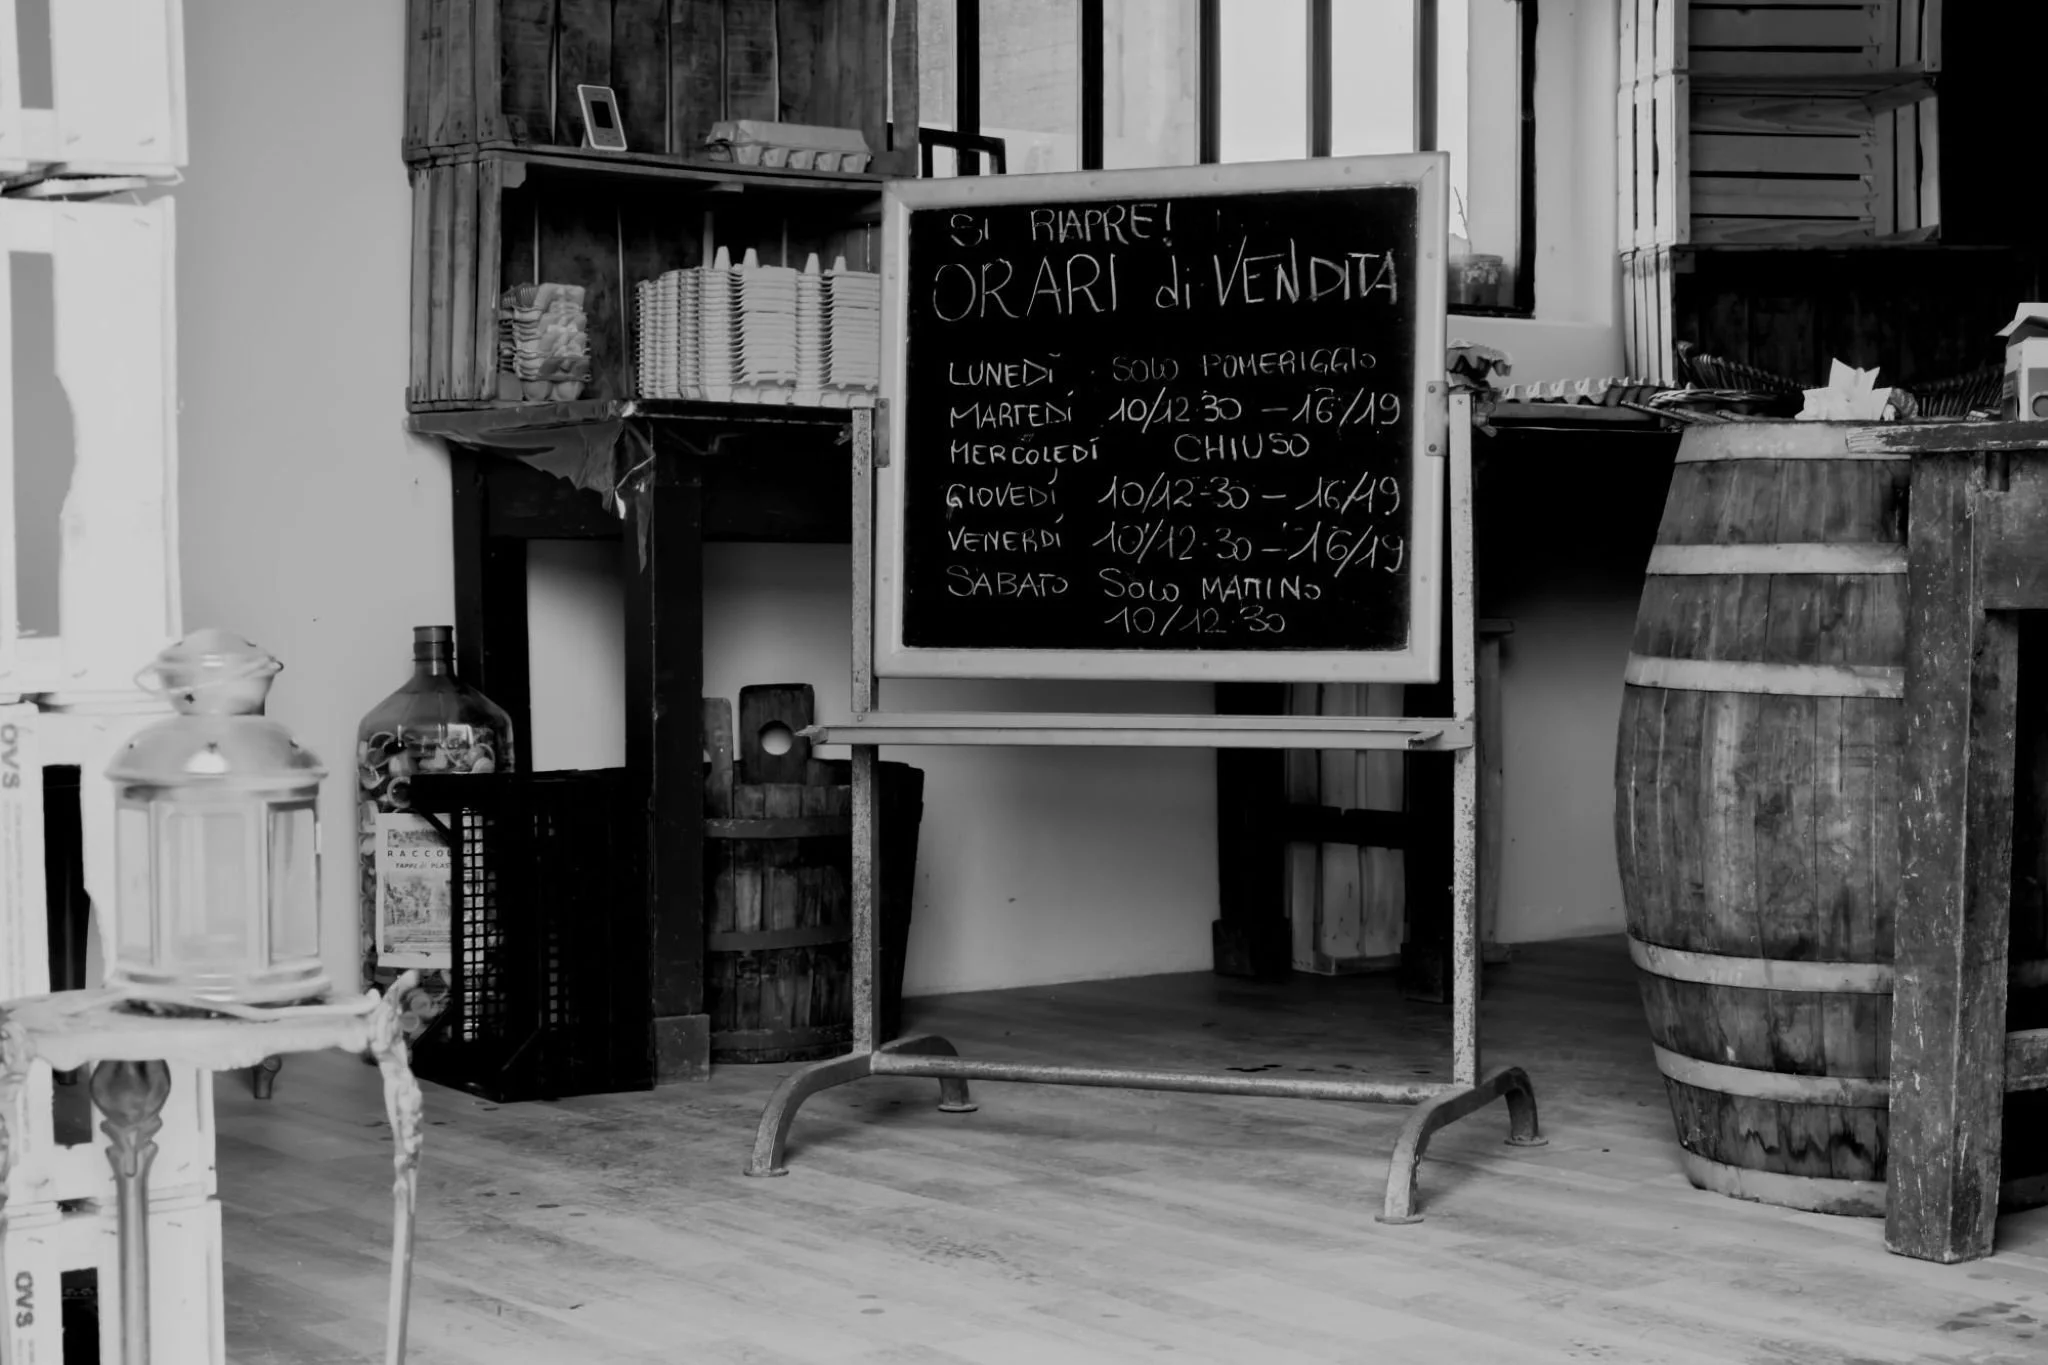 SI RIAPRE!
ORARI di VENDITA
LUNEDÌ SOLO POMERIGGIO
MARTEDÍ 10/12.30 - 16/19
MERCOLEDÍ CHIUSO
GIOVEDÍ 10/12.30 - 16/19
VENERDÍ 10/12.30 - 16/19
SABATO SOLO MATTINO
10/12.30
RACCOL
TAPPI di PLAST
OVS
OVS